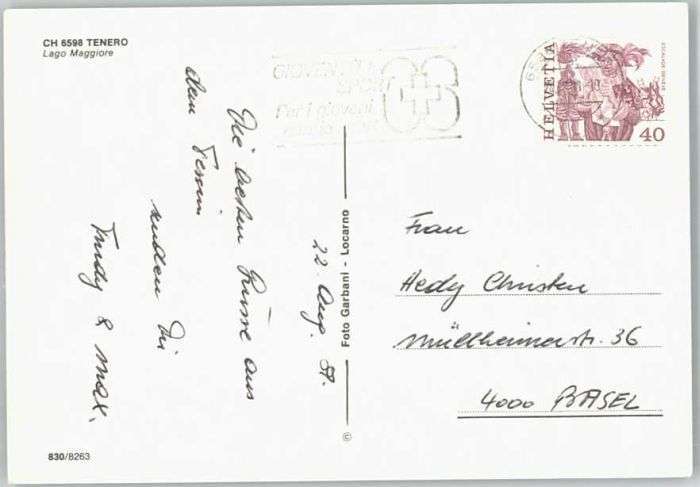 CH 6598 TENERO
Lago Maggiore
GIOVENTÙ
SPORT
Per i giovani
HELVETIA
40
Die besten Grüsse aus
dem Tessin
senden Dir
Trudy & Max.
22. Aug.
Foto Garbani - Locarno
©
Frau
Hedy Christen
Müllheimerstr. 36
4000 BASEL
830/8263